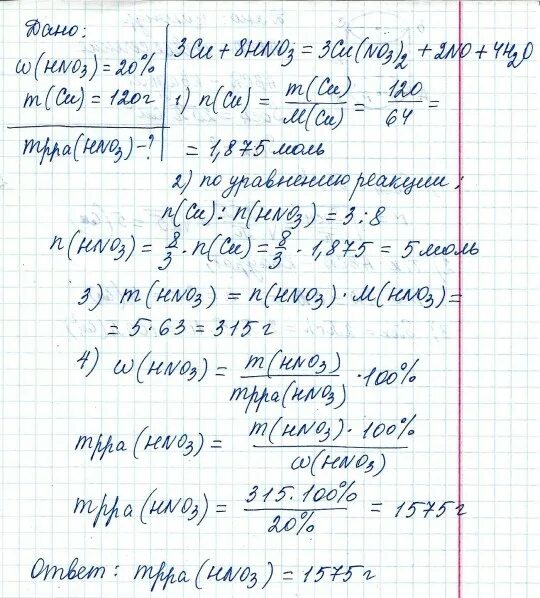 Дано:
ω(HNO3)=20%
m(Cu)=120г
mрра(HNO3)-?
3Cu+8HNO3=3Cu(NO3)2+2NO+4H2O
1) n(Cu) = m(Cu)/M(Cu) = 120/64 =
= 1,875 моль
2) по уравнению реакции:
n(Cu):n(HNO3) = 3:8
n(HNO3) = 8/3 · n(Cu) = 8/3 · 1,875 = 5 моль
3) m(HNO3) = n(HNO3)·M(HNO3)=
= 5·63 = 315 г
4) ω(HNO3) = m(HNO3)/mрра(HNO3) ·100%
mрра(HNO3) = m(HNO3)·100%/ω(HNO3)
mрра(HNO3) = 315·100%/20% = 1575 г
Ответ: mрра(HNO3) = 1575 г